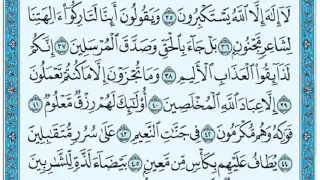 لَآ إِلَٰهَ إِلَّا ٱللَّهُ يَسْتَكْبِرُونَ ٣٥ وَيَقُولُونَ أَئِنَّا لَتَارِكُوٓا۟ ءَالِهَتِنَا
لِشَاعِرٍ مَّجْنُونٍۭ ٣٦ بَلْ جَآءَ بِٱلْحَقِّ وَصَدَّقَ ٱلْمُرْسَلِينَ ٣٧ إِنَّكُمْ
لَذَآئِقُوا۟ ٱلْعَذَابِ ٱلْأَلِيمِ ٣٨ وَمَا تُجْزَوْنَ إِلَّا مَا كُنتُمْ تَعْمَلُونَ
٣٩ إِلَّا عِبَادَ ٱللَّهِ ٱلْمُخْلَصِينَ ٤٠ أُو۟لَٰٓئِكَ لَهُمْ رِزْقٌ مَّعْلُومٌ ٤١
فَوَٰكِهُ وَهُم مُّكْرَمُونَ ٤٢ فِى جَنَّٰتِ ٱلنَّعِيمِ ٤٣ عَلَىٰ سُرُرٍ مُّتَقَٰبِلِينَ
٤٤ يُطَافُ عَلَيْهِم بِكَأْسٍ مِّن مَّعِينٍۭ ٤٥ بَيْضَآءَ لَذَّةٍ لِّلشَّٰرِبِينَ